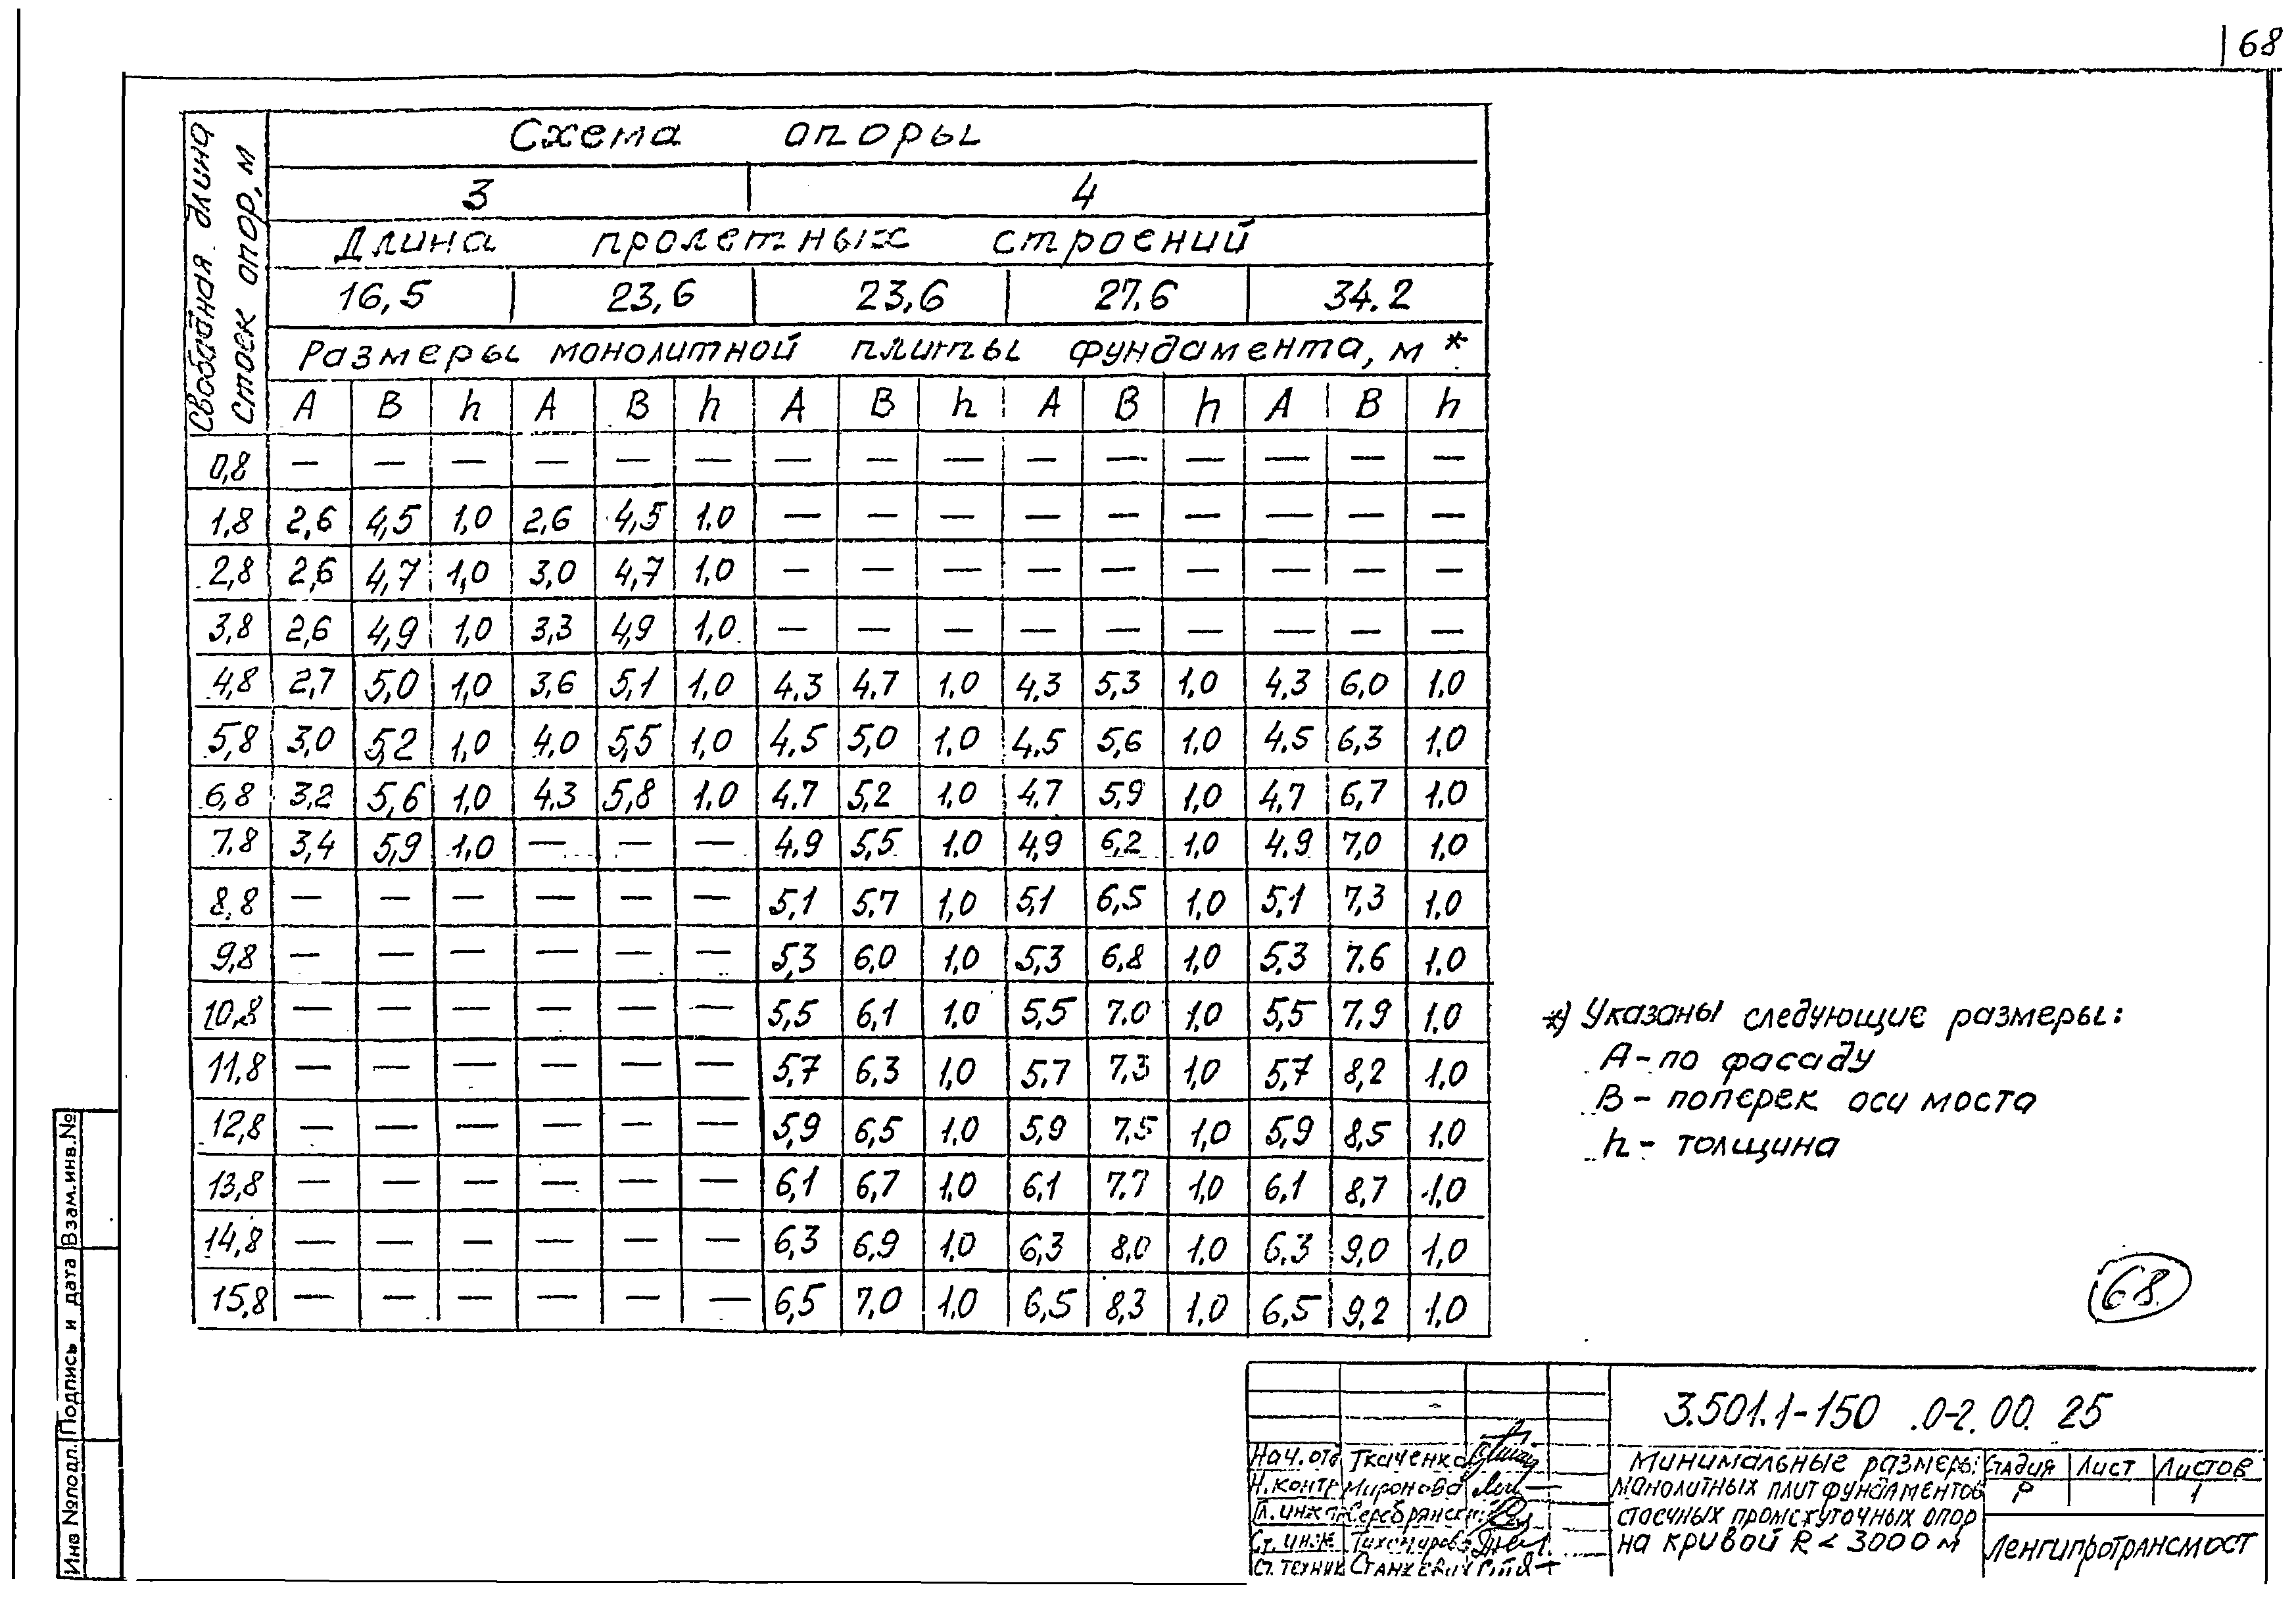 68
Свободная длина стоек опор, м
Схема опоры
3 4
Длина пролетных строений
16,5 23,6 23,6 27.6 34.2
Размеры монолитной плиты фундамента, м *
A B h A B h A B h A B h A B h
0,8 — — — — — — — — — — — — — — —
1,8 2,6 4,5 1,0 2,6 4,5 1.0 — — — — — — — — —
2,8 2,6 4,7 1,0 3,0 4,7 1,0 — — — — — — — — —
3,8 2,6 4,9 1,0 3,3 4,9 1,0 — — — — — — — — —
4,8 2,7 5,0 1,0 3,6 5,1 1,0 4.3 4.7 1.0 4.3 5,3 1,0 4.3 6,0 1.0
5,8 3,0 5,2 1,0 4,0 5,5 1,0 4.5 5,0 1.0 4.5 5,6 1.0 4.5 6,3 1,0
6,8 3,2 5,6 1,0 4.3 5,8 1.0 4.7 5,2 1.0 4.7 5,9 1,0 4,7 6,7 1.0
7,8 3,4 5,9 1,0 — — — 4.9 5,5 1.0 4,9 6,2 1,0 4.9 7,0 1,0
8,8 — — — — — — 5,1 5.7 1,0 5,1 6,5 1,0 5,1 7,3 1.0
9,8 — — — — — — 5,3 6,0 1,0 5,3 6,8 1,0 5.3 7.6 1.0
10,8 — — — — — — 5,5 6,1 1,0 5,5 7.0 1,0 5,5 7,9 1,0
11,8 — — — — — — 5,7 6,3 1,0 5,7 7,3 1,0 5,7 8,2 1,0
12,8 — — — — — — 5,9 6,5 1,0 5,9 7,5 1,0 5,9 8,5 1,0
13,8 — — — — — — 6,1 6,7 1,0 6,1 7,7 1,0 6,1 8,7 1,0
14,8 — — — — — — 6,3 6,9 1,0 6,3 8,0 1,0 6,3 9,0 1,0
15,8 — — — — — — 6,5 7,0 1,0 6,5 8,3 1,0 6,5 9,2 1,0
*) Указаны следующие размеры:
A - по фасаду
B - поперек оси моста
h - толщина
68
Инв №подл. Подпись и дата Взам.инв.№
3.501.1-150 .0-2.00. 25
Нач.отд Ткаченко
Н.контр Миронова
Гл.инж Серебрянский
Ст.инж Тихомирова
Ст.техник Станкевич
Минимальные размеры
монолитных плит фундаментов
стоечных промежуточных опор
на кривой R < 3000 м
Стадия Лист Листов
Р 1
Ленгипротрансмост